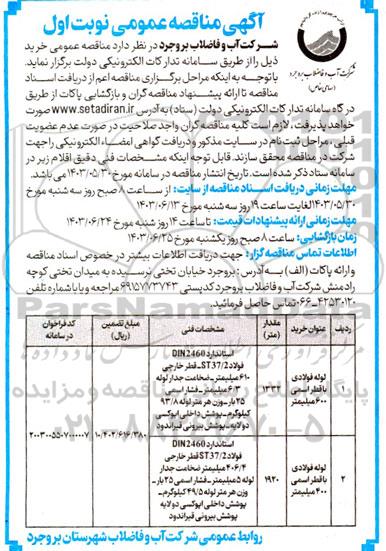 آگهی مناقصه عمومی نوبت اول
شرکت آب و فاضلاب بروجرد
(سهامی خاص)
شرکت آب و فاضلاب بروجرد در نظر دارد مناقصه عمومی خرید
ذیل را از طریق سامانه تدارکات الکترونیکی دولت برگزار نماید.
با توجه به اینکه مراحل برگزاری مناقصه اعم از دریافت اسناد
مناقصه تا ارائه پیشنهاد مناقصه گران و بازگشایی پاکات از طریق
درگاه سامانه تدارکات الکترونیکی دولت (ستاد) به آدرس www.setadiran.ir صورت
خواهد پذیرفت، لازم است کلیه مناقصه گران واجد صلاحیت در صورت عدم عضویت
قبلی، مراحل ثبت نام در سایت مذکور و دریافت گواهی امضاء الکترونیکی را جهت
شرکت در مناقصه محقق سازند. قابل توجه اینکه مشخصات فنی دقیق اقلام زیر در
سامانه ستاد ذکر شده است. تاریخ انتشار مناقصه در سامانه مورخ ۱۴۰۳/۰۵/۳۰ می باشد.
مهلت زمانی دریافت اسناد مناقصه از سایت: از ساعت ۸ صبح روز سه شنبه مورخ
۱۴۰۳/۰۵/۳۰ لغایت ساعت ۱۹ روز سه شنبه مورخ ۱۴۰۳/۰۶/۱۳
مهلت زمانی ارائه پیشنهادات قیمت: تا ساعت ۱۴ روز شنبه مورخ ۱۴۰۳/۰۶/۲۴
زمان بازگشایی: ساعت ۸ صبح روز یکشنبه مورخ ۱۴۰۳/۰۶/۲۵
اطلاعات تماس مناقصه گزار: جهت دریافت اطلاعات بیشتر در خصوص اسناد مناقصه
و ارائه پاکات (الف) به آدرس: بروجرد خیابان تختی نرسیده به میدان تختی کوچه
رادمنش شرکت آب و فاضلاب بروجرد کد پستی ۶۹۱۵۷۷۳۷۴۳ مراجعه و یا با شماره تلفن
۰۶۶-۴۲۵۳۰۱۲۰ تماس حاصل فرمائید.
ردیف عنوان خرید مقدار (متر) مشخصات فنی مبلغ تضمین (ریال) کد فراخوان در سامانه
۱ لوله فولادی با قطر اسمی ۶۰۰ میلیمتر ۱۳۳۲
استاندارد DIN2460
فولاد ST37/2 قطر خارجی
۶۱۰ میلیمتر ضخامت جدار لوله
۶/۳ میلیمتر- فشار اسمی
۲۵ بار- وزن هر متر لوله ۹۳/۸
کیلوگرم- پوشش داخلی اپوکسی
دولایه- پوشش بیرونی قیراندود
۲ لوله فولادی با قطر اسمی ۴۰۰ میلیمتر ۱۹۲۰
استاندارد DIN2460
فولاد ST37/2 قطر خارجی
۴۰۶/۴ میلیمتر ضخامت جدار
لوله ۵ میلیمتر- فشار اسمی ۲۵ بار-
وزن هر متر لوله ۴۹/۵ کیلوگرم-
پوشش داخلی اپوکسی دولایه
پوشش بیرونی قیراندود
۱۰/۴۰۲/۶۱۶/۳۸۰
۲۰۰۳۰۰۵۵۰۷۰۰۰۰۰۷
روابط عمومی شرکت آب و فاضلاب شهرستان بروجرد